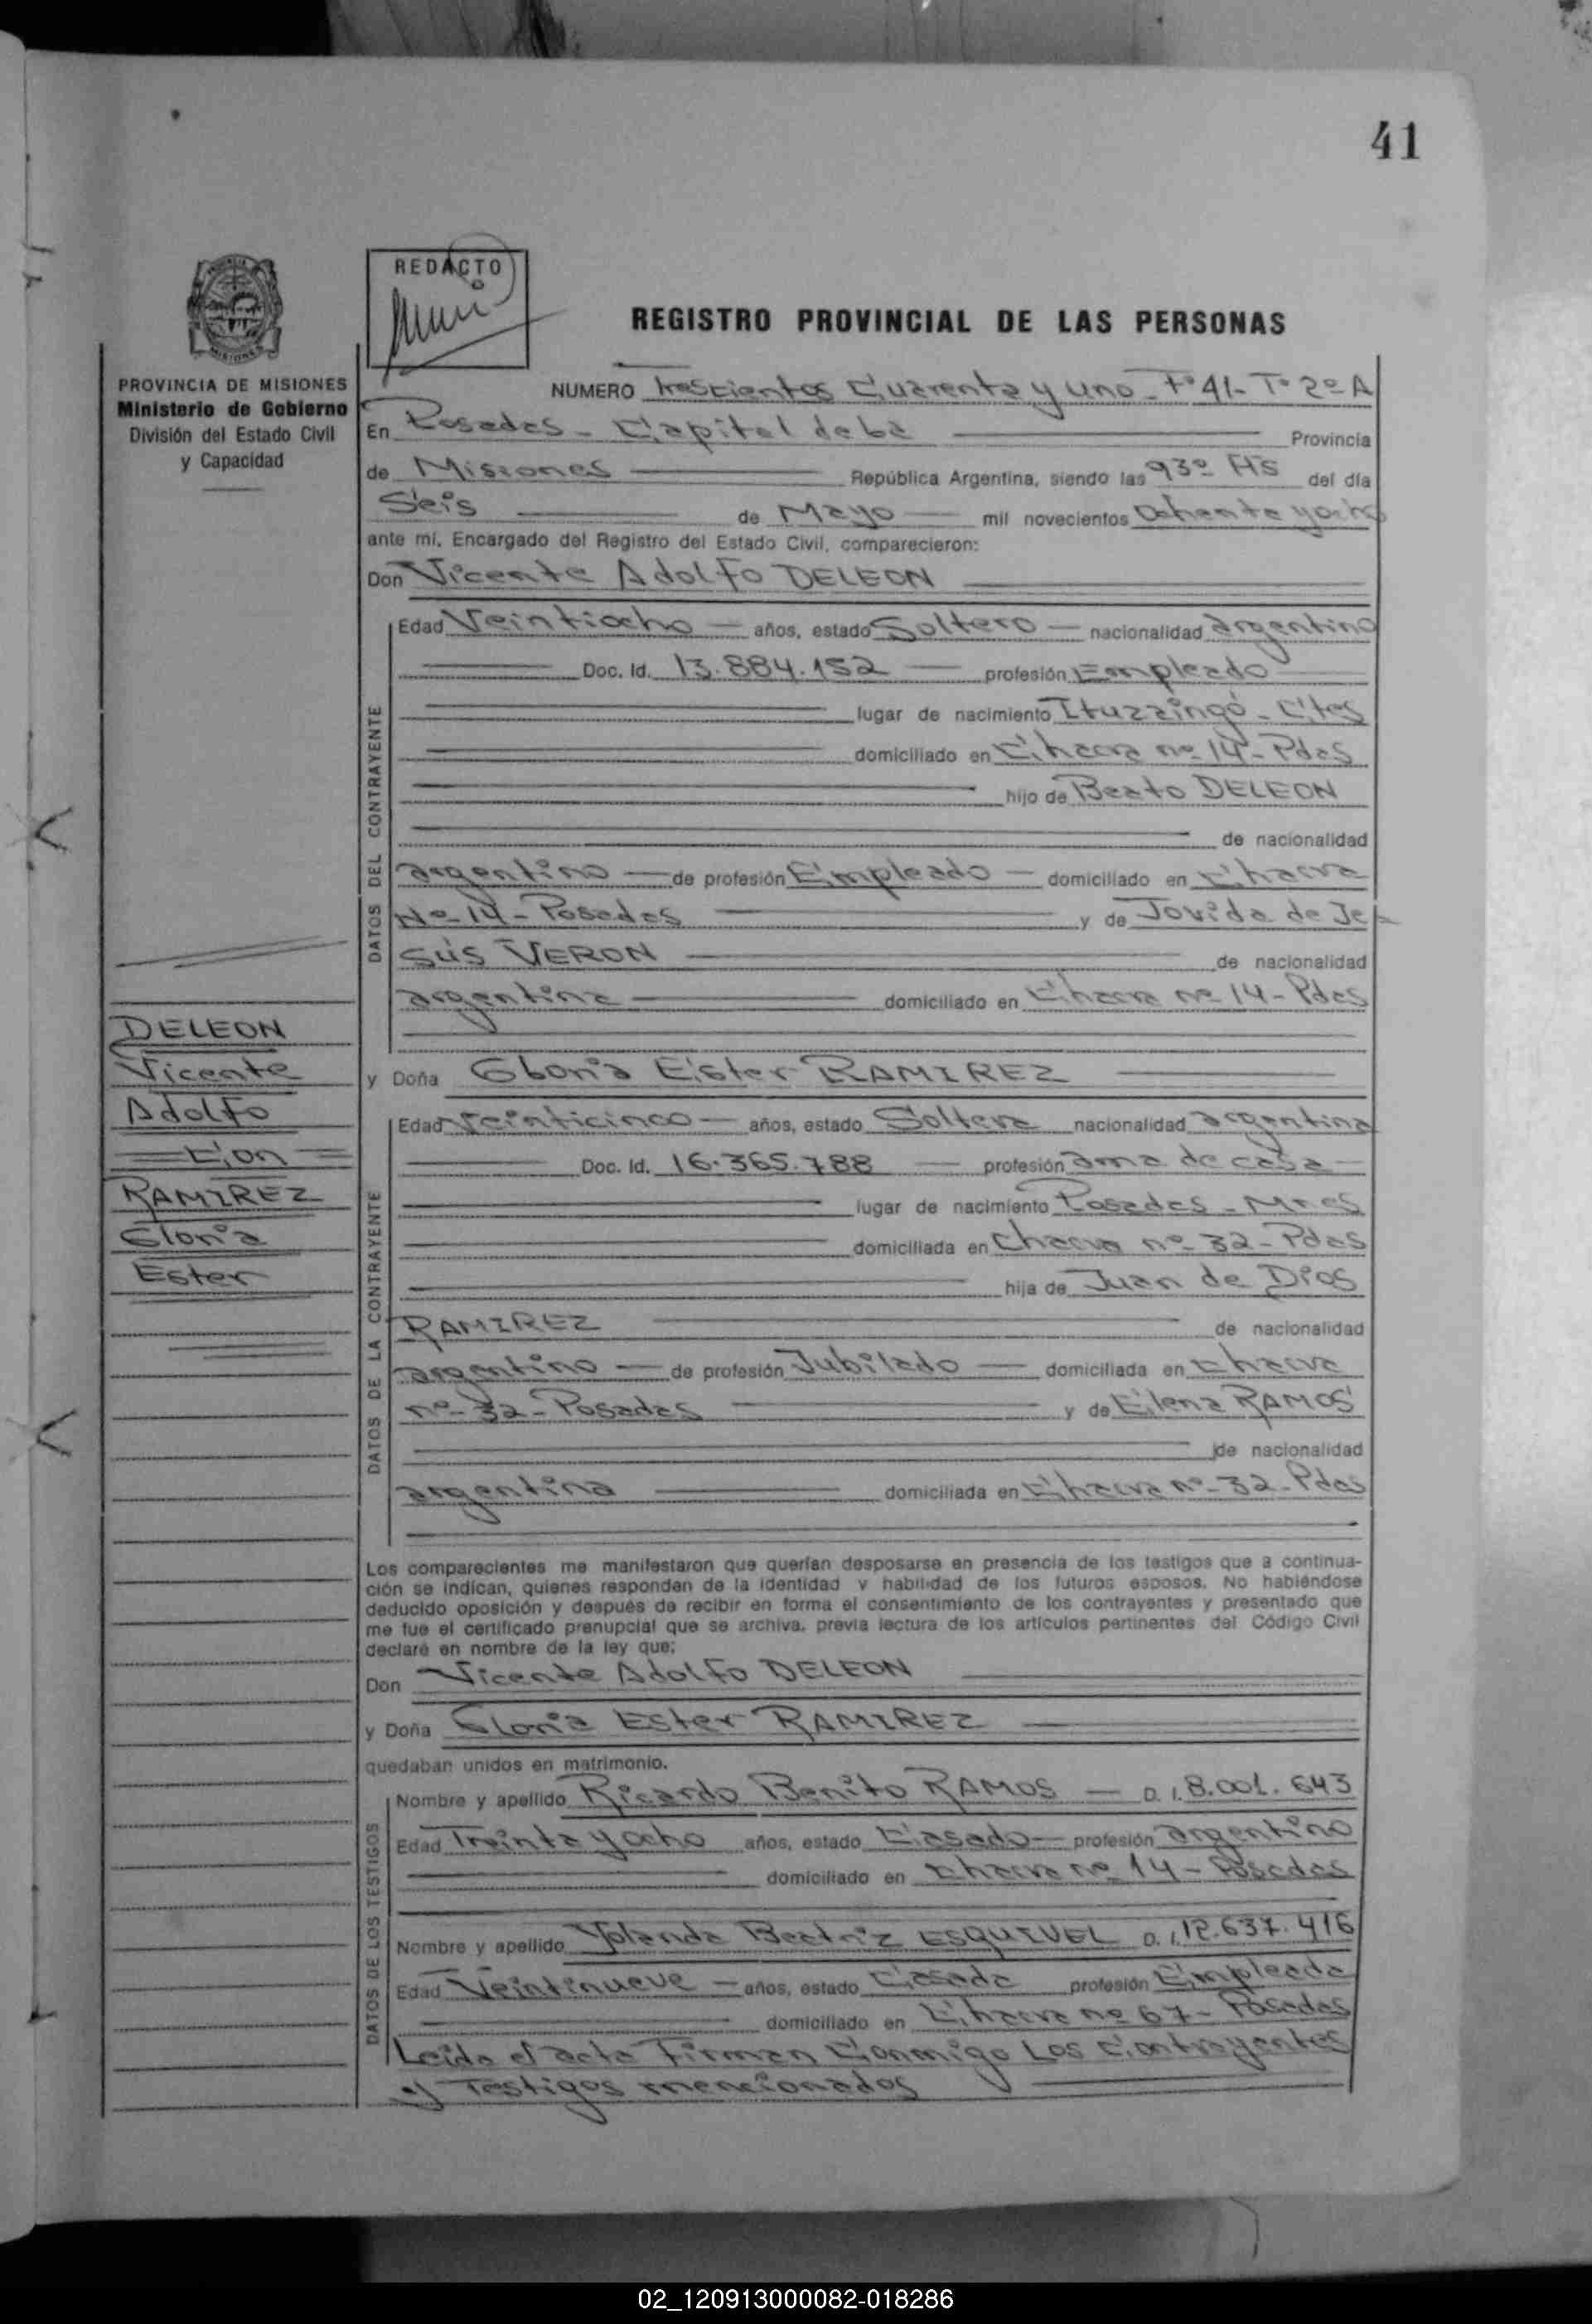 41
REDACTO
REGISTRO PROVINCIAL DE LAS PERSONAS
PROVINCIA DE MISIONES
Ministerio de Gobierno
División del Estado Civil
y Capacidad
NUMERO Trescientos Cuarenta y uno - Fº 41 - Tº 2º A
En Posadas - Capital de la Provincia
de Misiones República Argentina, siendo las 9 30 Hs del día
Seis de Mayo mil novecientos Ochenta y ocho
ante mí, Encargado del Registro del Estado Civil, comparecieron:
Don Vicente Adolfo DELEON
DATOS DEL CONTRAYENTE
Edad Veintiocho años, estado Soltero nacionalidad argentino
Doc. Id. 13.884.152 profesión Empleado
lugar de nacimiento Ituzaingó - Ctes
domiciliado en Chacra nº 14 - Pdas
hijo de Beato DELEON
de nacionalidad
argentino de profesión Empleado domiciliado en Chacra
Nº 14 - Posadas y de Jovida de Je
sús VERON de nacionalidad
argentina domiciliado en Chacra nº 14 - Pdas
DELEON
Vicente
Adolfo
Con
RAMIREZ
Gloria
Ester
y Doña Gloria Ester RAMIREZ
DATOS DE LA CONTRAYENTE
Edad Veinticinco años, estado Soltera nacionalidad argentina
Doc. Id. 16.365.788 profesión ama de casa
lugar de nacimiento Posadas - Mnes
domiciliada en Chacra nº 32 - Pdas
hija de Juan de Dios
RAMIREZ de nacionalidad
argentino de profesión Jubilado domiciliada en Chacra
nº 32 - Posadas y de Elena RAMOS
de nacionalidad
argentina domiciliada en Chacra nº 32 - Pdas
Los comparecientes me manifestaron que querían desposarse en presencia de los testigos que a continua-
ción se indican, quienes responden de la identidad y habilidad de los futuros esposos. No habiéndose
deducido oposición y después de recibir en forma el consentimiento de los contrayentes y presentado que
me fue el certificado prenupcial que se archiva, previa lectura de los artículos pertinentes del Código Civil
declaré en nombre de la ley que:
Don Vicente Adolfo DELEON
y Doña Gloria Ester RAMIREZ
quedaban unidos en matrimonio.
DATOS DE LOS TESTIGOS
Nombre y apellido Ricardo Benito RAMOS D. I. 8.001.643
Edad Treinta y ocho años, estado Casado profesión argentino
domiciliado en Chacra nº 14 - Posadas
Nombre y apellido Yolanda Beatriz ESQUIVEL D. I. 12.637.416
Edad Veintinueve años, estado Casada profesión Empleada
domiciliado en Chacra nº 67 - Posadas
Leída el acta Firman Conmigo Los Contrayentes
y Testigos mencionados
02_120913000082-018286